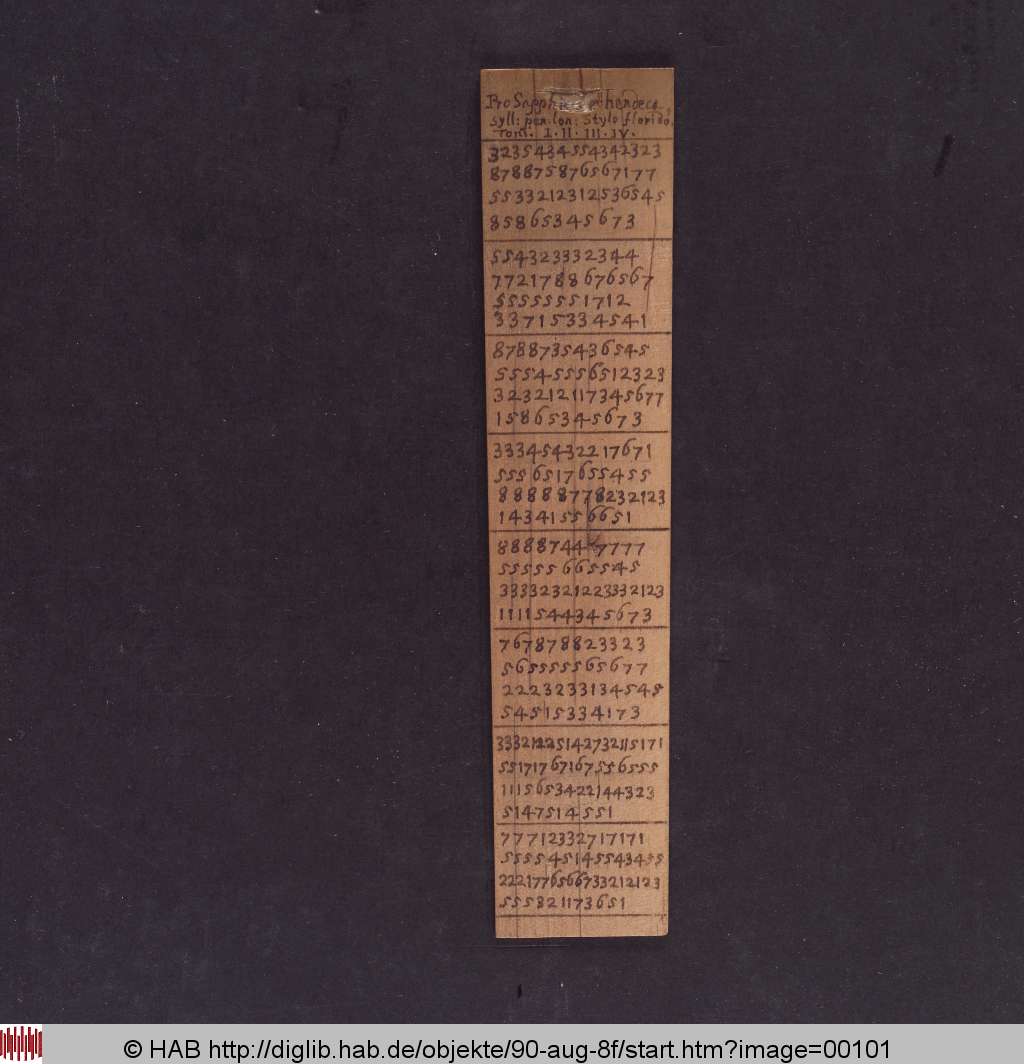 Pro Sapph hendeca
syll: pen. lon: Stylo florido,
Tom. I. II. III. IV.
323543455434 2323
878875876567177
553321231253 6545
85865345673
5543233323 44
772178867 6567
55555551712
33715334541
87887354 36545
555455565 12323
32321211734 5677
15865345673
333454322 17671
555651765 5455
888887782 32123
14341556651
88887447777
55555665545
3333232122333 2123
11115443 45673
76787882 3323
565555565 677
222323313 4545
54515334173
3332122514273 2115171
5517176716755 6555
1115653422144 323
51475145 51
777123327 17171
5555451455434 55
22217765667332 12123
555821173651
© HAB http://diglib.hab.de/objekte/90-aug-8f/start.htm?image=00101